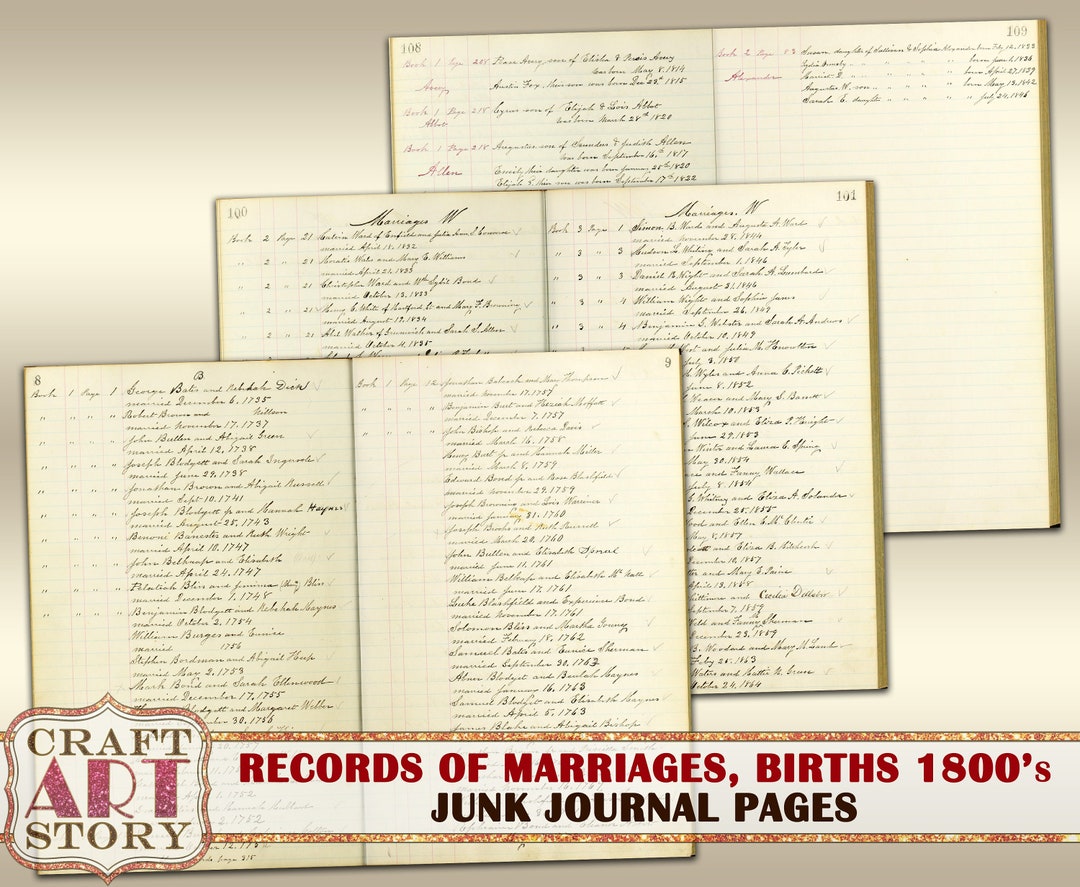 108
Book 1 Page 208 Avery, son of Elisha & Avery
was born May 8, 1814
Avery
Austin Fox, their son was born Dec 29th 1815
Book 1 Page 218 Cyrus son of Elijah & Lois Abbot
Abbot was born March 28th 1820
Book 1 Page 218 Augustus son of Saunders & Judith Allen
was born September 16th 1817
Allen Emily their daughter was born January 25th 1820
Elijah their son was born September 17th 1822
109
Book 2 Page 83 Susan daughter of & Sophia Alexander born Feb. 12, 1833
" " " " born 1836
Alexander Harriet E. " " " " born April 27, 1839
Augustus W. son " " " " born May 13, 1842
Sarah E. daughter " " " " July 24, 1845
100
Marriages W
Book 2 Page 21 Calvin Ward of Enfield and Julia Ann
married April 18, 1832
" 2 " 21 Horatio Wales and Mary E. Williams
married April 21, 1833
" 2 " 21 Christopher Ward and Sybil Bond
married October 13, 1833
" 2 " 21 Henry C. White of Hartford Ct and Mary F. Browning
married August 12, 1834
" 2 " 21 Abel Walker of Greenwich and Sarah S. Allen
married October 4, 1835
101
Marriages, W
Book 3 Page 1 Simon B. Ward and Augusta A. Ward
married November 28, 1844
" 3 " 3 Hudson L. Whiting and Sarah A. Tyler
married September 1, 1846
" 3 " 3 Daniel B. Wight and Sarah A. Lombard
married August 31, 1846
" 3 " 4 William Wight and Sophia Janes
married September 26, 1849
" 3 " 4 Benjamin G. Webster and Sarah A. Andrews
married October 10, 1849
and Julia M. Knowlton
July 3, 1850
Wyles and Anna C. Pickett
June 8, 1852
Weaver and Mary S. Barrett
March 10, 1853
Wilcox and Eliza P. Knight
June 29, 1853
Winter and Laura C. Spring
May 30, 1854
and Fanny Wallace
July 8, 1854
G. Whitney and Eliza A. Solander
December 25, 1855
and Ellen E.
May 8, 1857
and Eliza B. Hitchcock
December 10, 1857
and Mary E. Paine
April 13, 1858
and Cecelia
September 7, 1859
Weld and Fanny Sherman
December 23, 1859
B. Woodard and Mary M.
Feby 25, 1863
Waters and Hattie N. Grace
October 24, 1864
8
B
Book 1 Page 1 George Bates and Rebekah Dick
married December 6, 1735
" " " " Robert Brown and Willson
married November 17, 1737
" " " " John Bullen and Abigail Green
married April 12, 1738
" " " " Joseph Blodgett and Sarah Ingersole
married June 29, 1738
" " " " Jonathan Brown and Abigail Russell
married Sept 10, 1741
" " " " Joseph Blodgett Jr and Hannah Haynes
married August 25, 1743
" " " " Benoni Banister and Ruth Wright
married April 10, 1747
" " " " John Belknap and Elisabeth
married April 24, 1747
" " " " Pelatiah Bliss and Jemima Bliss
married December 1, 1748
" " " " Benjamin Blodgett and Rebekah Haynes
married October 2, 1754
William Burges and Eunice
married 1756
Stephen Bordman and Abigail Heep
married May 2, 1753
Mark Bond and Sarah Ellenwood
married December 17, 1755
Blodgett and Margaret Webber
30, 1756
9
Book 1 Page 12 Jonathan Babcock and Mary Thompson
married November 17, 1757
" " " " Benjamin Burt and Keziah Moffatt
married December 7, 1757
" " " " John Bishop and Rebeca Davis
married March 16, 1758
Henry Burt Jr and Hannah Miller
married March 8, 1759
Edward Bond Jr and Rose Blashfield
married November 29, 1759
Joseph Browning and Lois Warriner
married January 31, 1760
Joseph Brooks and Ruth Russell
married March 20, 1760
John Bullen and Elizabeth
married June 11, 1761
William Belknap and Elisabeth McNall
married June 17, 1761
Luke Blashfield and Experience Bond
married November 17, 1761
Solomon Bliss and Martha Young
married February 18, 1762
Samuel Bates and Eunice Sherman
married September 30, 1762
Abner Blodgett and Beulah Haynes
married January 16, 1763
Samuel Blodgett and Elizabeth Haynes
married April 5, 1763
James Blake and Abigail Bishop
CRAFT
ART
STORY
RECORDS OF MARRIAGES, BIRTHS 1800's
JUNK JOURNAL PAGES